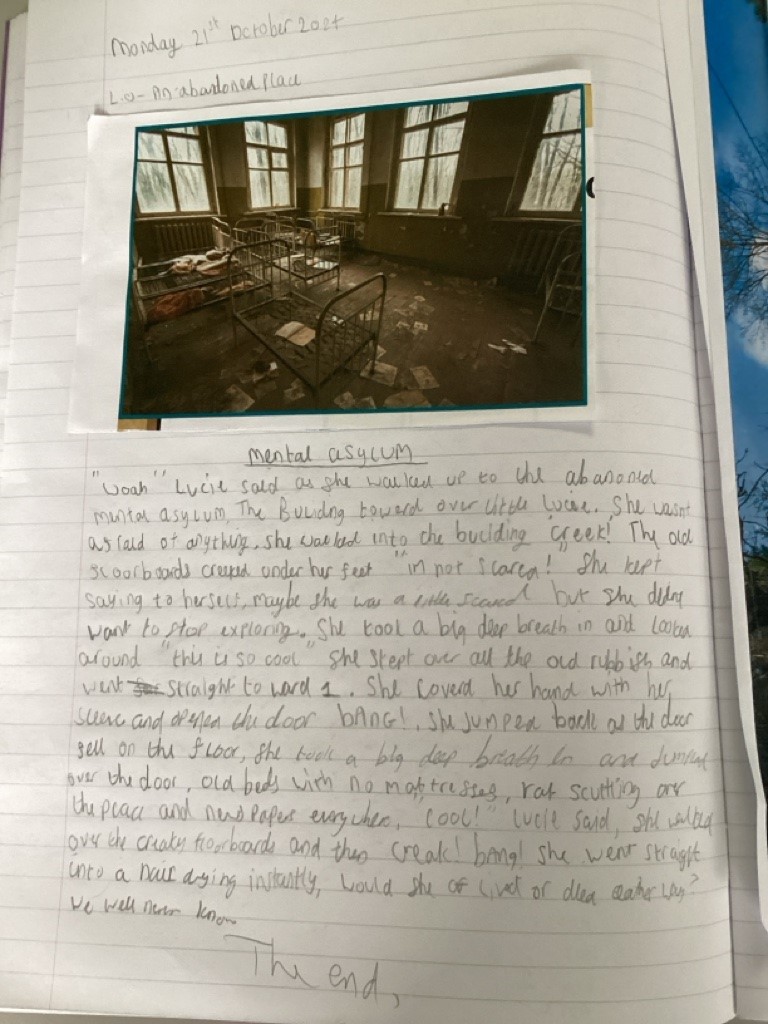 Monday 21st October 2024
L.O- An abandoned place
mental asylum
"woah" Lucie said as she walked up to the abanoned
mental asylum, The Buliding toward over little Lucie. She wasnt
afraid of anything, she walked into the buciding 'creek!' The old
floorboards creeped under her feet "im not scared!" She kept
saying to herself, maybe she was a little scared but she didnt
want to stop exploring. She took a big deep breath in and looked
around "this is so cool" she stept over all the old rubbish and
went straight to ward 1. She coverd her hand with her
sleeve and opened the door BANG!, she jumped back as the door
fell on the floor, she took a big deep breath in and jumped
over the door, old beds with no mattresses, rat scutting over
the place and newspapers everywhere, "Cool!" Lucie said, she walked
over the creaky floorboards and then creak! bang! she went straight
into a nail dying instantly, would she of lived or died eather way?
we well never know
The end,